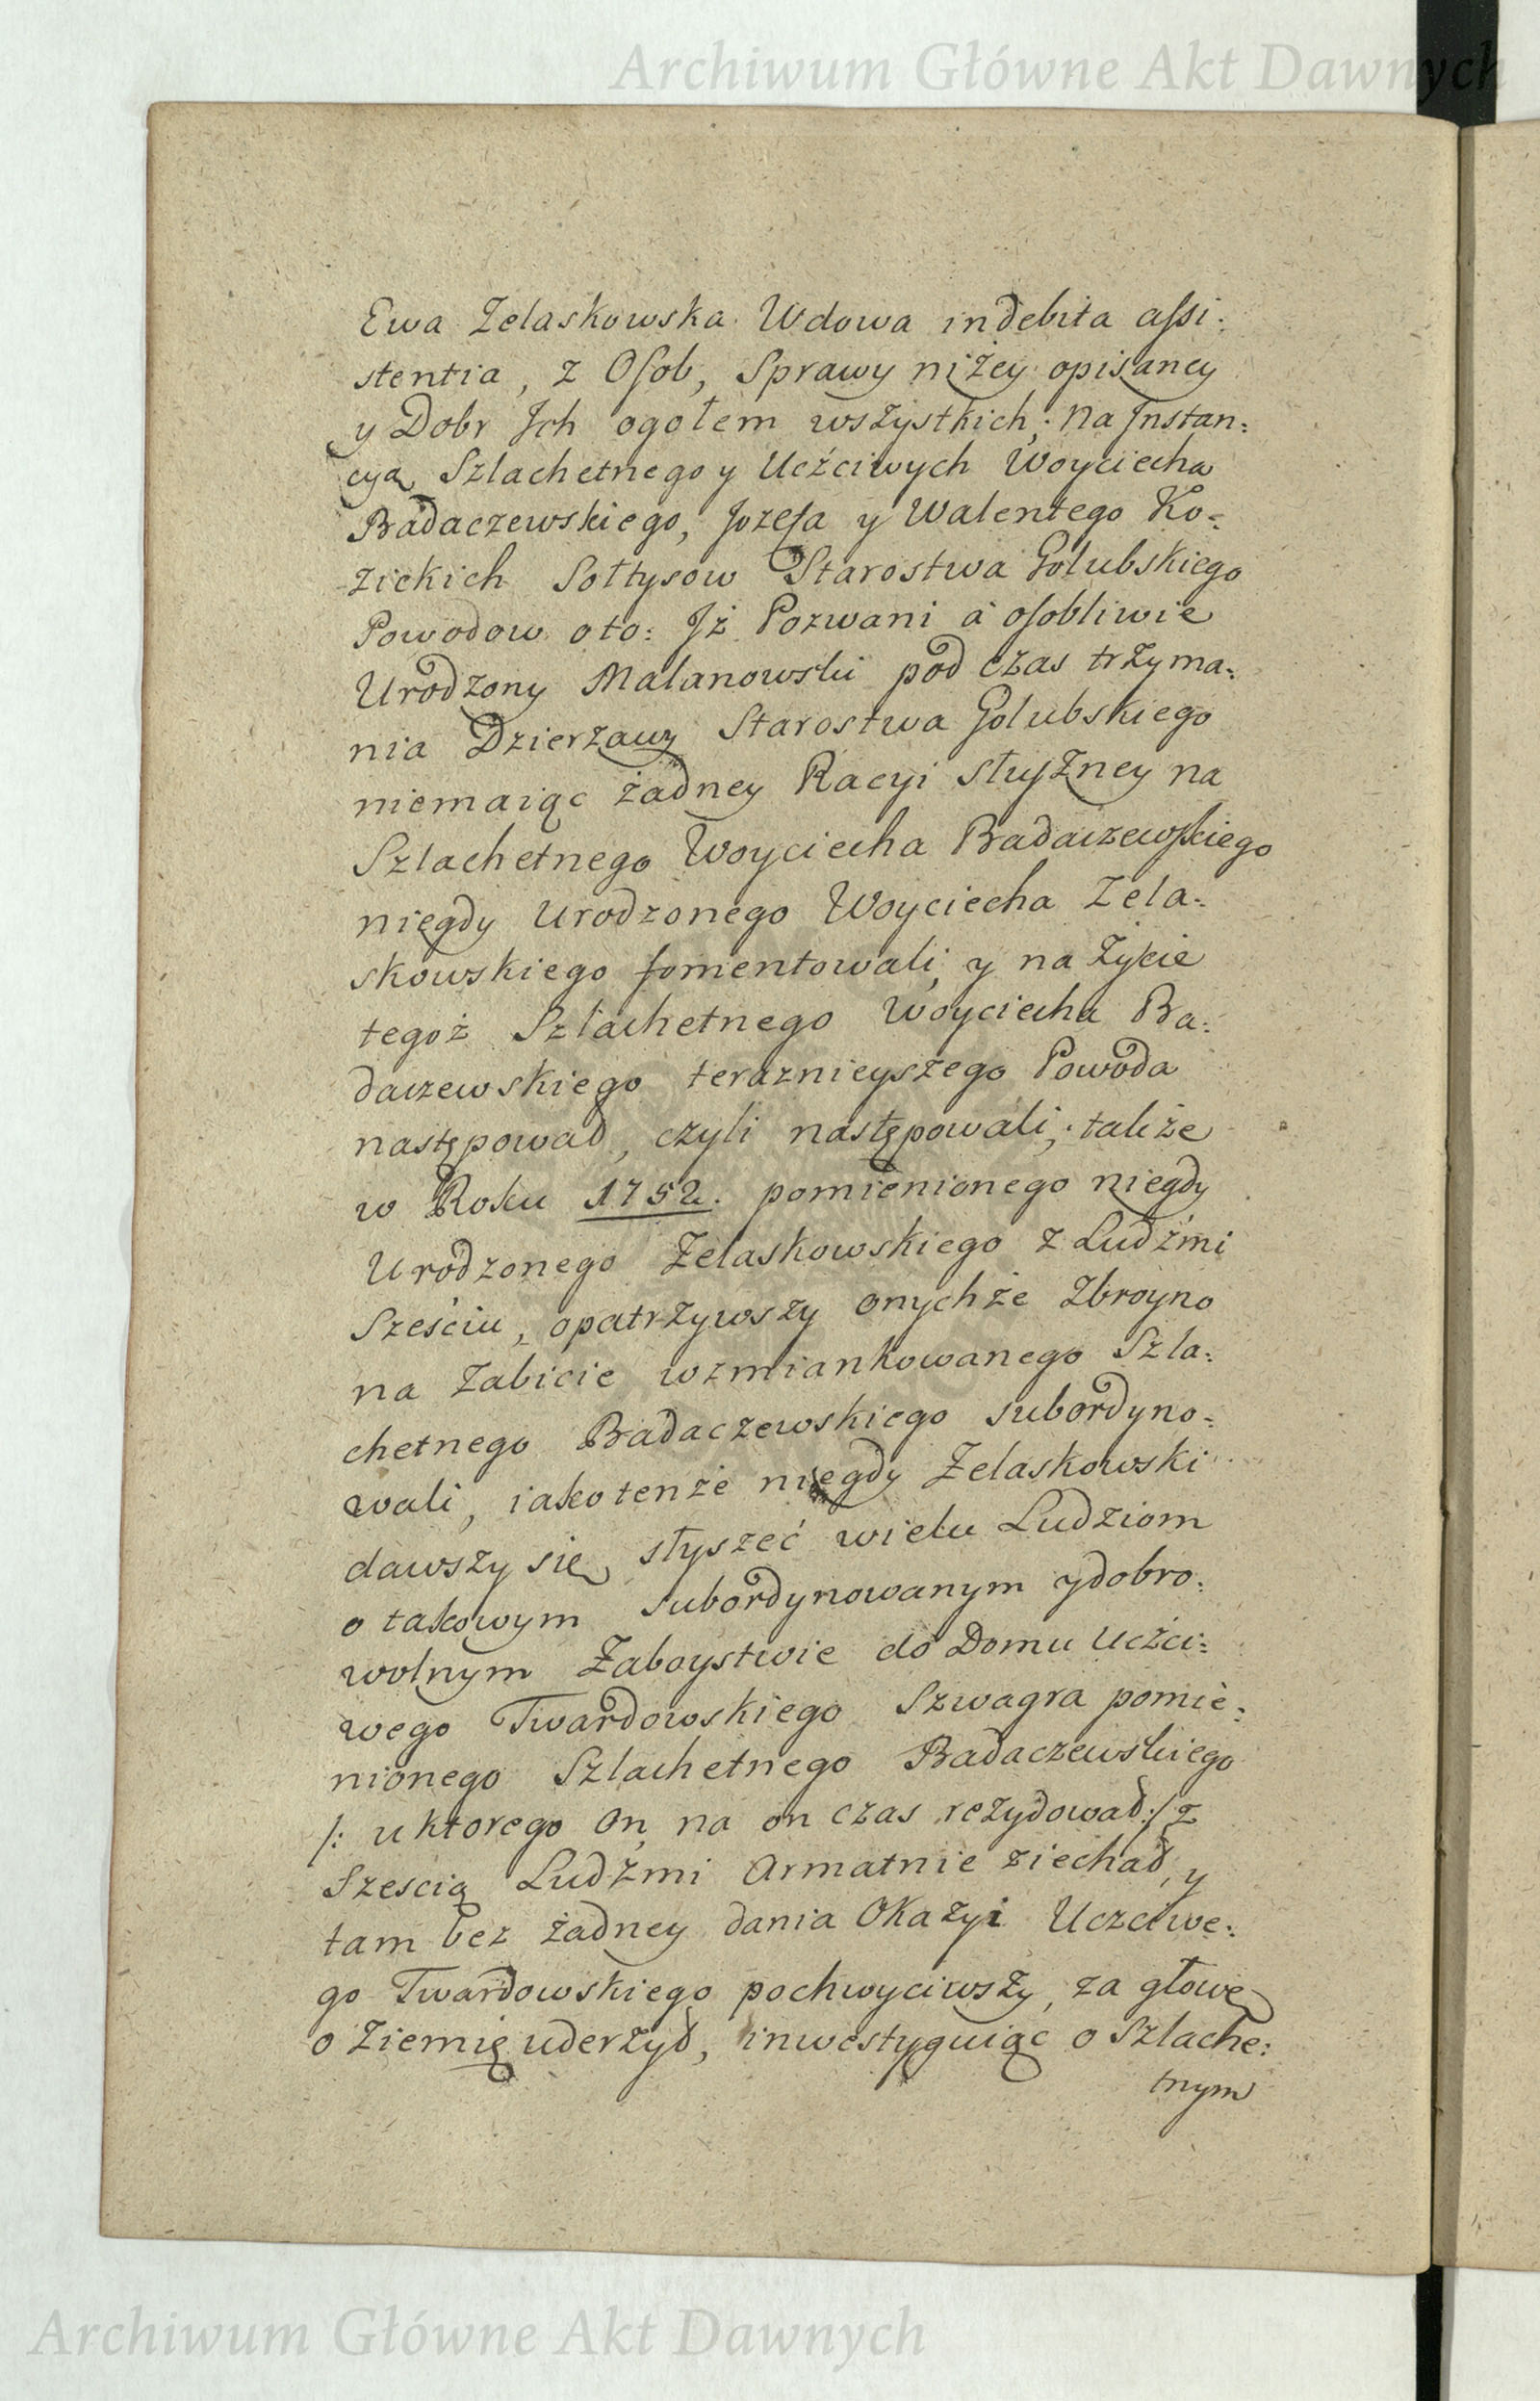 Archiwum Główne Akt Dawnych
Ewa Zelaskowska Wdowa in debita assi:
stentia, z Osob, Sprawy niżey opisaney
y Dobr Jch ogołem wszystkich; Na Jnstan:
cyą Szlachetnego y Uczciwych Woyciecha
Badaczewskiego, Jozefa y Walentego Ko:
zickich Sołtysow Starostwa Golubskiego
Powodow oto: Jż Pozwani à osobliwie
Urodzony Malanowski pod czas trzyma:
nia Dzierzawy Starostwa Golubskiego
niemaiąc żadney Racyi słuszney na
Szlachetnego Woyciecha Badaczewskiego
niegdy Urodzonego Woyciecha Zela:
skowskiego fomentowali, y na życie
tegoż Szlachetnego Woyciecha Ba:
daczewskiego teraznieyszego Powoda
następował, czyli następowali; także
w Roku 1752. pomienionego niegdy
Urodzonego Zelaskowskiego z Ludźmi
Sześciu, opatrzywszy onychże zbroyno
na zabicie wzmiankowanego Szla:
chetnego Badaczewskiego subordyno:
wali, iako tenże niegdy Zelaskowski
dawszy się słyszeć wielu Ludziom
o takowym subordynowanym y dobro:
wolnym Zaboystwie do Domu Uczci:
wego Twardowskiego Szwagra pomie:
nionego Szlachetnego Badaczewskiego
/: u ktorego on na on czas rezydował :/ z
Sześcią Ludźmi Armatnie ziechał, y
tam bez żadney dania Okazyi Uczciwe:
go Twardowskiego pochwyciwszy, za głowę
o Ziemię uderzył, inwestyguiąc o Szlache:
tnym
Archiwum Główne Akt Dawnych